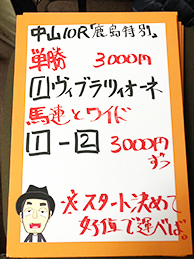 中山10R「鹿島特別」
単勝 3000円
1 ヴィブラツィオーネ
馬連とワイド
1-2 3000円
ずつ
※スタート決めて
好位で運べば。